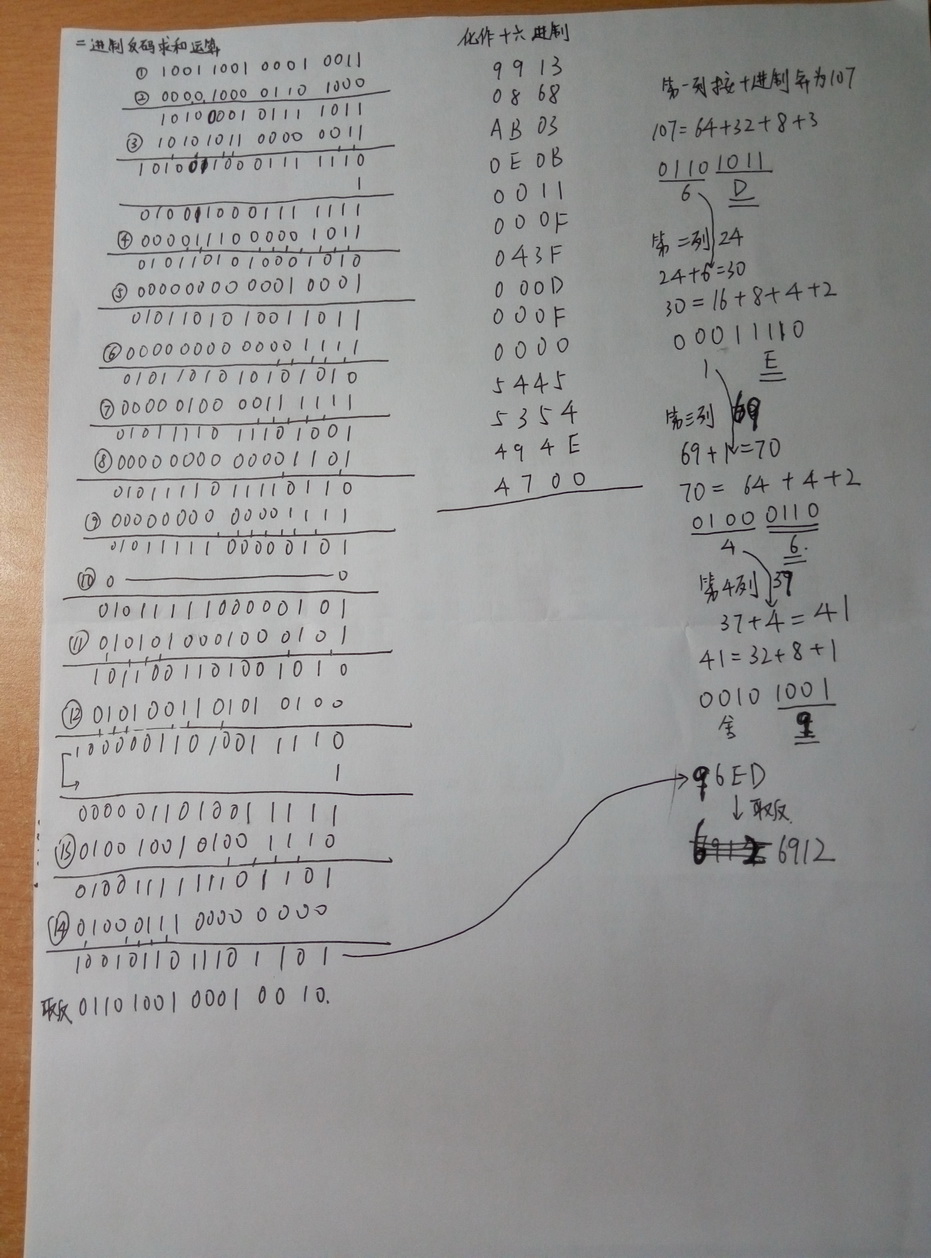 二进制反码求和运算
① 1001 1001 0001 0011
② 0000 1000 0110 1000
1010 0001 0111 1011
③ 10101011 0000 0011
10100 1000111 1110
1
01001000111 1111
④ 00001110 0000 1011
0101101010001010
⑤ 00000000 0001 0001
01011010 10011011
⑥ 00000000 0000 1111
01011010 10101010
⑦ 00000100 0011 1111
01011110 11101001
⑧ 00000000 00001101
01011110 11110110
⑨ 00000000 00001111
01011111 00000101
⑩ 0 0
0101111100000101
⑪ 010101000100 0101
1011001101001010
⑫ 01010011 0101 0100
10000011010011110
1
0000011010011111
⑬ 0100 1001 0100 1110
0100111111101101
⑭ 01000111 0000 0000
1001011011101101
取反 01101001 0001 0010.
化作十六进制
9913
0868
AB03
0E0B
0011
000F
043F
000D
000F
0000
5445
5354
494E
4700
第一列按十进制算为107
107=64+32+8+3
0110 1011
6 D
第二列 24
24+6=30
30=16+8+4+2
00011110
1 E
第三列 69
69+1=70
70= 64+4+2
0100 0110
4 6.
第4列 37
37+4=41
41=32+8+1
0010 1001
舍 9
96ED
↓取反
6912